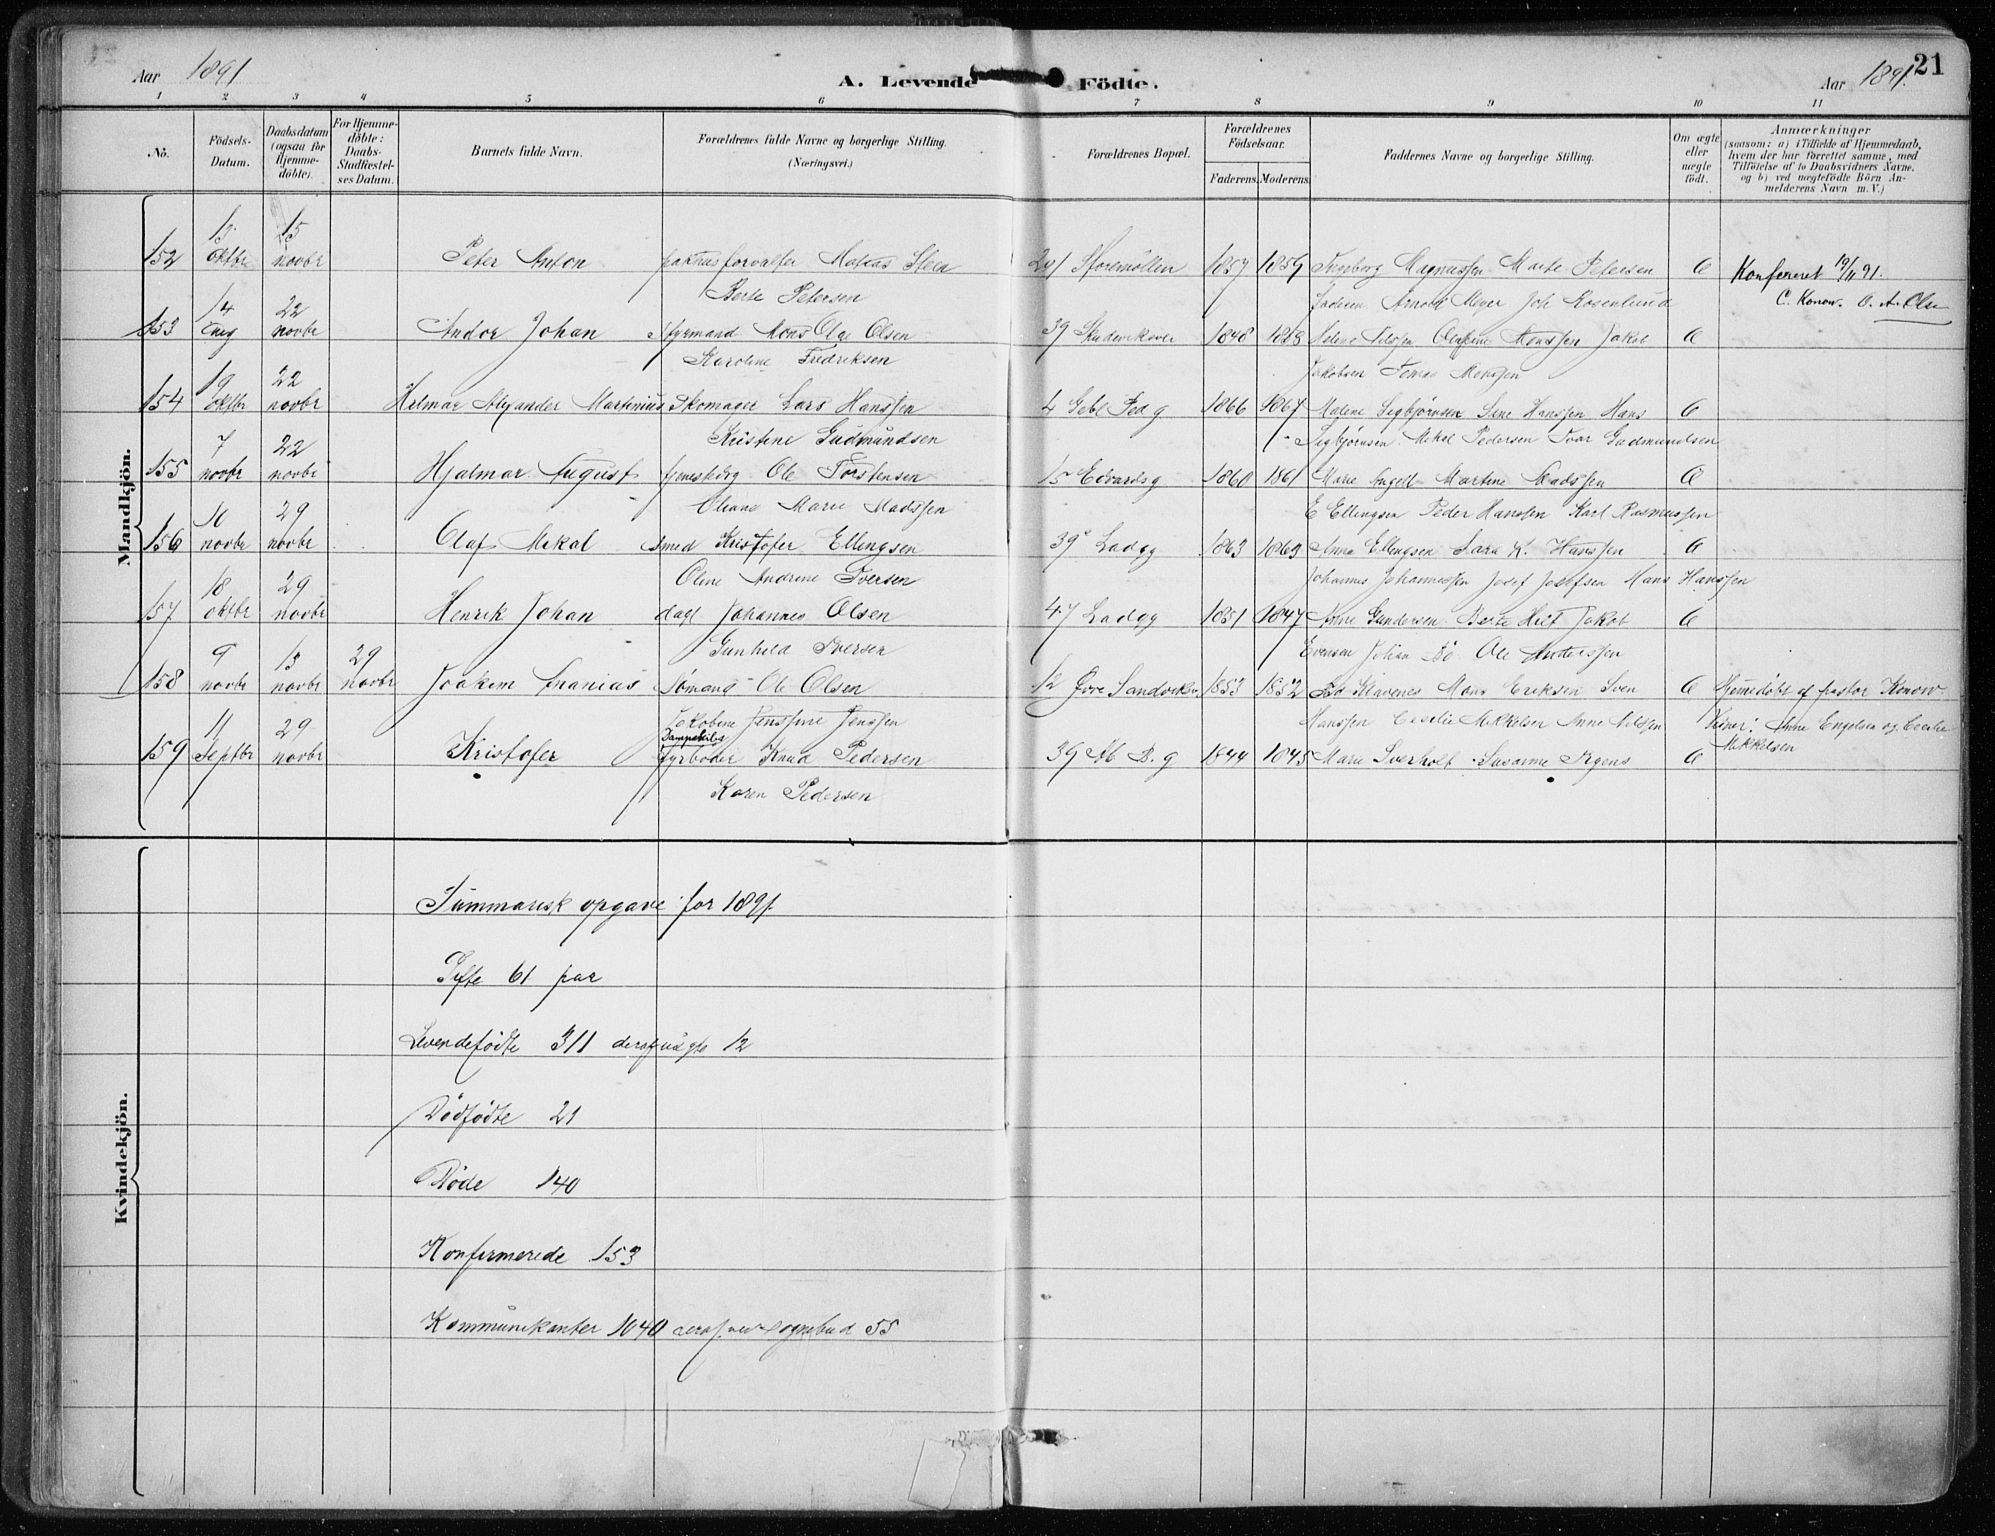 Aar 1891
A. Levende Födte.
Aar 1891.
21
1 2 3 4 5 6 7 8 9 10 11
No.
Födsels-Datum.
Daabsdatum (ogsaa for Hjemme-döbte).
For Hjemme-döbte: Daabs-Stadfæstel-ses Datum.
Barnets fulde Navn.
Forældrenes fulde Navne og borgerlige Stilling. (Næringsvei.)
Forældrenes Bopæl.
Forældrenes Födselsaar.
Faderens. Moderens.
Faddernes Navne og borgerlige Stilling.
Om ægte eller uægte födt.
Anmærkninger (saasom: a) i Tilfælde af Hjemmedaab, hvem der har forrettet samme, med Tilföielse af to Daabsvidners Navne, og b) ved uægtefödte Börn An-melderens Navn m. V.)
Mandkjön.
13 15
152 oktbr novbr Peter Anton pakhusforvalter Steen 1857 1859 Ingeborg Magnussen Marte Petersen Konfereret 19/11 91.
Berte Petersen Arnold Meyer Joh Rosenlund C. Konow. O. A. Olsen
14 22
153 aug novbr Andor Johan styrmand Mons Olai Olsen 39 1848 Jakob
Karoline Fredriksen Jakobsen Monssen
19 22
154 oktbr novbr Hilmar Alexander Martinius skomager Lars Hanssen 4 1866 1867 Malene Sigbjørnsen Sine Hanssen Hans
Kristine Gudmundsen Sigbjørnsen Mikal Pedersen Ivar Gudmundsen
7 22
155 novbr novbr Hjalmar August Ole Torstensen 15 Edvardsg 1860 1861 Marie Angell Martine Madssen
Oliane Marie Madssen E Ellingsen Peder Hanssen Karl Rasmussen
10 29
156 novbr novbr Olaf Mikal smed Kristofer Ellingsen 39 Ladeg 1863 1863 Anna Ellingsen Sara K. Hanssen
Oline Andrine Iversen Johannes Johannessen Josef Josefsen Hans Hanssen
18 29
157 oktbr novbr Henrik Johan dagl Johannes Olsen 47 Ladeg 1851 1847 Anne Gundersen Berte Jakob
Gunhild Iversen Evensen Johan Bø Ole Anderssen
9 13 29
158 novbr novbr novbr Joakim Ananias Sømand Ole Olsen 12 Øvre Sandviksv 1853 1852 Mons Eriksen Sven Hjemmedøbt af pastor Konow.
Jakobine Jenssine Jenssen Hanssen Cecilie Mikkelsen Anne Nilssen Vidner: Anne Engelsen og Cecilie Mikkelsen
11 29 Dampskibs
159 Septbr novbr Kristofer fyrbøder Knud Pedersen 39 1844 1845 Marie Sverholt Susanne Irgens
Karen Pedersen
Kvindekjön.
Summarisk opgave for 1891.
Gifte 61 par
Levendefødte 311 deraf uægte 12
Dødfødte 21
Døde 140
Konfirmerede 153
Kommunikanter 1040 deraf ved sognebud 55